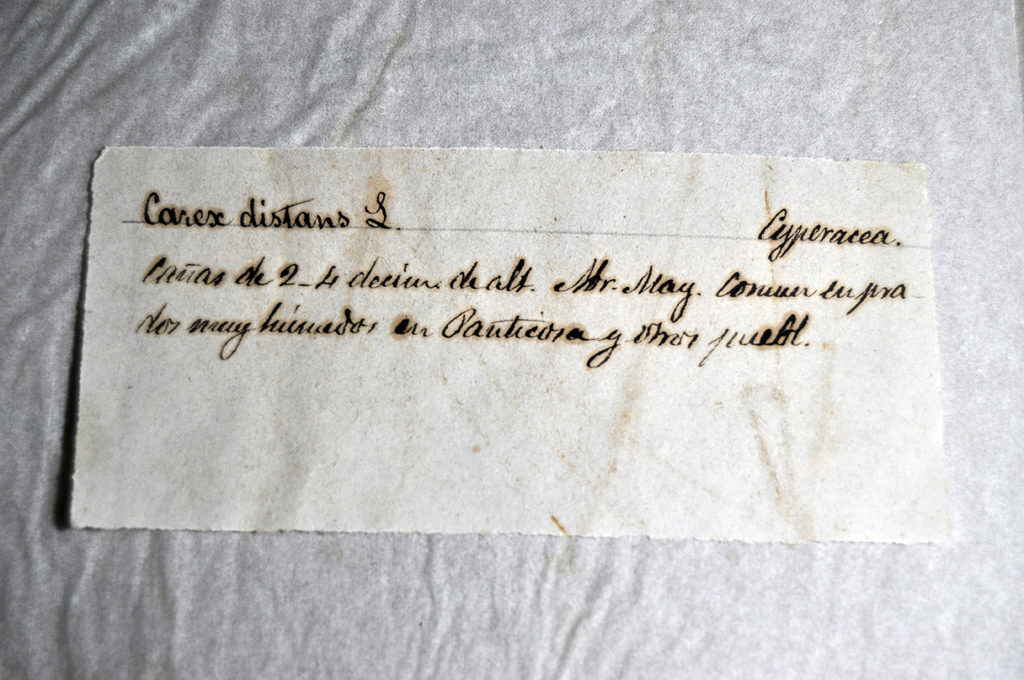 Carex distans L. Cyperacea.
Cañas de 2-4 decim. de alt. Abr. May. Comun en pra-
dos muy húmedos en Panticosa y otros puebl.